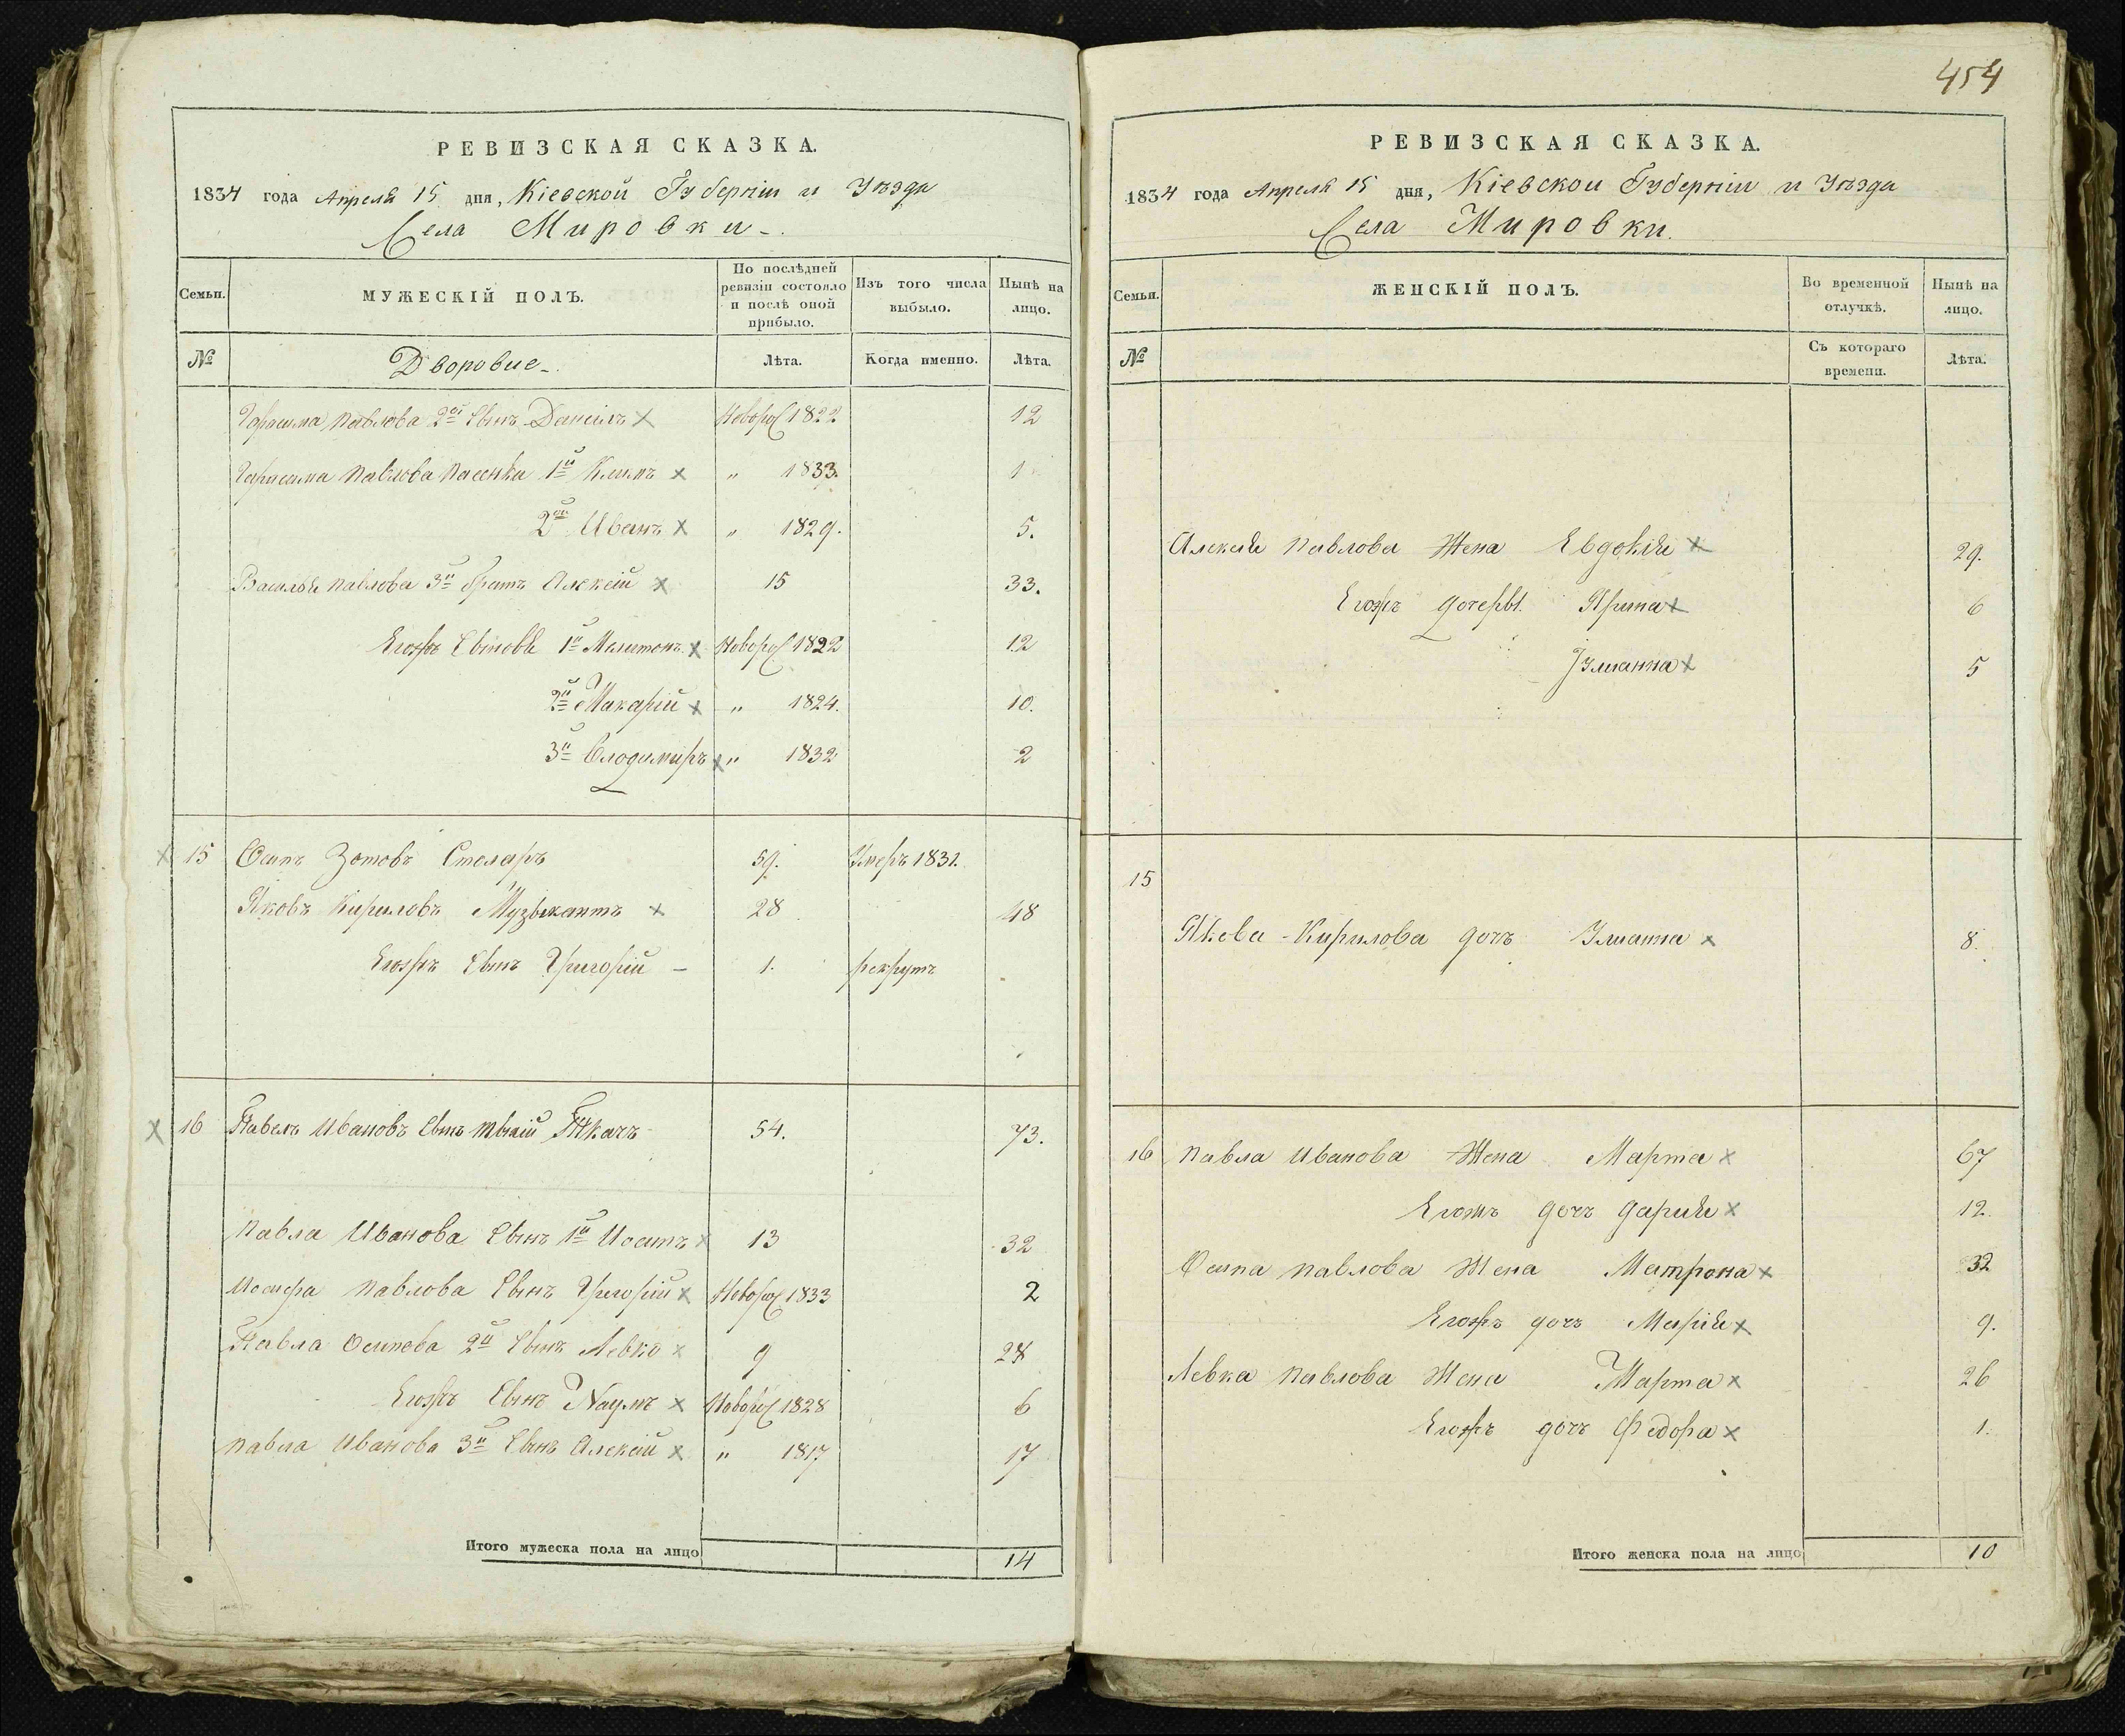 РЕВИЗСКАЯ СКАЗКА.
1834 года Апреля 15 дня, Кіевской Губерніи и Уѣзда
Села Мировки
Семьи.
МУЖЕСКІЙ ПОЛЪ.
По послѣдней ревизіи состояло и послѣ оной прибыло.
Изъ того числа выбыло.
Нынѣ на лицо.
№
Дворовые
Лѣта.
Когда именно.
Лѣта.
Герасима Павлова 2й Сынъ Данилъ Новорож 1822 12
Герасима Павлова 1й Климъ " 1833. 1
2й Иванъ " 1829. 5.
Василья Павлова 3й братъ Алексій 15 33.
Егожъ Сыновья 1й Мелитонъ Новорож 1822 12
2й Макарій " 1824. 10.
3й Влодимиръ " 1832 2
15 Осипъ Зотовъ Столяръ 59. Умеръ 1831.
Яковъ Кириловъ Музыкантъ 28 48
Егожъ Сынъ Григорій 1. рекрутъ
16 Павелъ Ивановъ Сынъ Ткачъ 54. 73.
Павла Иванова Сынъ 1й Иосипъ 13 32
Иосифа Павлова Сынъ Григорій Новорож 1833 2
Павла Осипова 2й Сынъ Левко 9 28
Егожъ Сынъ Наумъ Новорож 1828 6
Павла Иванова 3й Сынъ Алексій " 1817 17
Итого мужеска пола на лицо 14
454
РЕВИЗСКАЯ СКАЗКА.
1834 года Апреля 15 дня, Кіевской Губерніи и Уѣзда
Села Мировки.
Семьи.
ЖЕНСКІЙ ПОЛЪ.
Во временной отлучкѣ.
Нынѣ на лицо.
№
Съ котораго времени.
Лѣта.
Алексія Павлова Жена Евдокія 29.
Егожъ дочеры Ярина 6
Уліанна 5
15
Якова Кирилова дочъ Уліанна 8.
16 Павла Иванова Жена Марта 67
Егожъ дочъ Дарія 12.
Осипа Павлова Жена Матрона 32
Егожъ дочъ Марія 9.
Левка Павлова Жена Марта 26
Егожъ дочъ Федора 1.
Итого женска пола на лицо 10